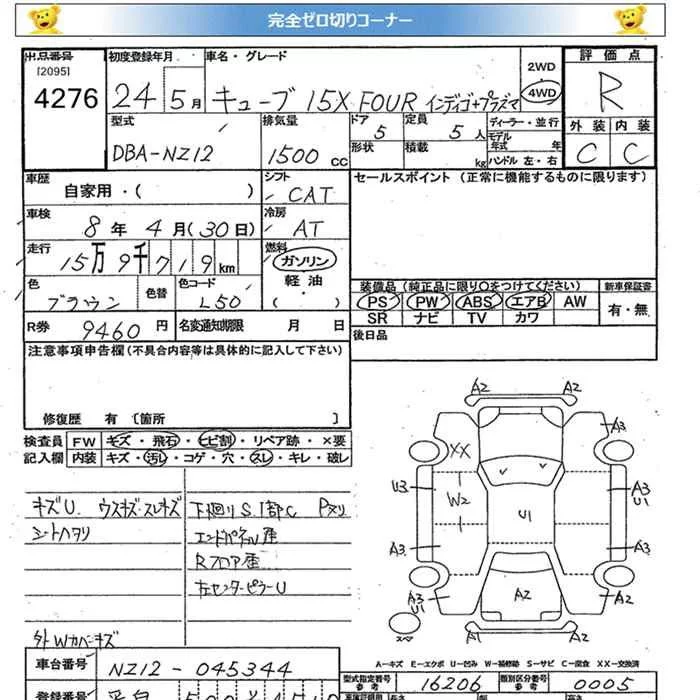 完全ゼロ切りコーナー
出品番号 初度登録年月 車名・グレード 2WD 評価点
[2095]
4276 24 5月 キューブ 15X FOUR インディゴ+プラズマ 4WD R
型式 排気量 ドア 定員 ディーラー・並行 外装 内装
DBA-NZ12 1500cc 5 5人 モデル年式 年 C C
形状 積載 kg ハンドル 左・右
車歴 シフト セールスポイント (正常に機能するものに限ります)
自家用・( ) CAT
車検 冷房
8年 4月(30日) AT
走行 燃料
15万9千719km ガソリン
色 色替 色コード 軽油 装備品 (純正品に限り○をつけてください) 新車保証書
ブラウン L50 ( ) PS PW ABS エアB AW 有・無
SR ナビ TV カワ
R券 9460円 名変通知期限 月 日 後日品
注意事項申告欄(不具合内容等は具体的に記入して下さい)
修復歴 有 [箇所 ]
検査員 FW キズ・飛石・ヒビ割・リペア跡・×要
記入欄 内装 キズ・汚レ・コゲ・穴・スレ・キレ・破レ
キズU. ウスキズ・スレキズ 下廻りS.1部C Pヌリ
シートヘタリ エンドパネル歪
Rフロア歪
左センターピラーU
外Wカバーキズ
A2 A2
XX A3
U3 W2 U1 A3 U1
A3 A3
A3 U1 A2 A2
A1 A2
A-キズ E-エクボ U-凹み W-補修跡 S-サビ C-腐食 XX-交換済
車台番号 NZ12-045344 型式指定番号 参考 16206 類別区分番号 参考 0005
登録番号